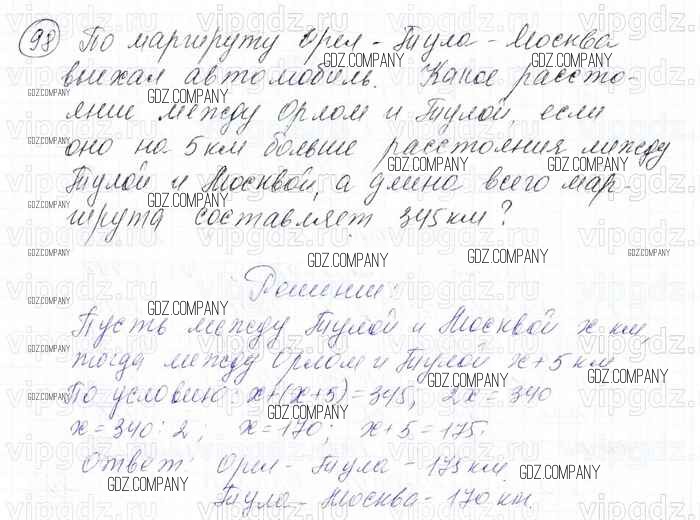 98 По маршруту Орел - Тула - Москва
выехал автомобиль. Какое рассто-
яние между Орлом и Тулой, если
оно на 5 км больше расстояния между
Тулой и Москвой, а длина всего мар-
шрута составляет 345 км?
Решение:
Пусть между Тулой и Москвой x км,
тогда между Орлом и Тулой x+5 км
По условию: x+(x+5)=345, 2x=340
x=340:2; x=170; x+5=175.
Ответ: Орел - Тула - 175 км.
Тула - Москва - 170 км.
vipgdz.ru
GDZ.COMPANY